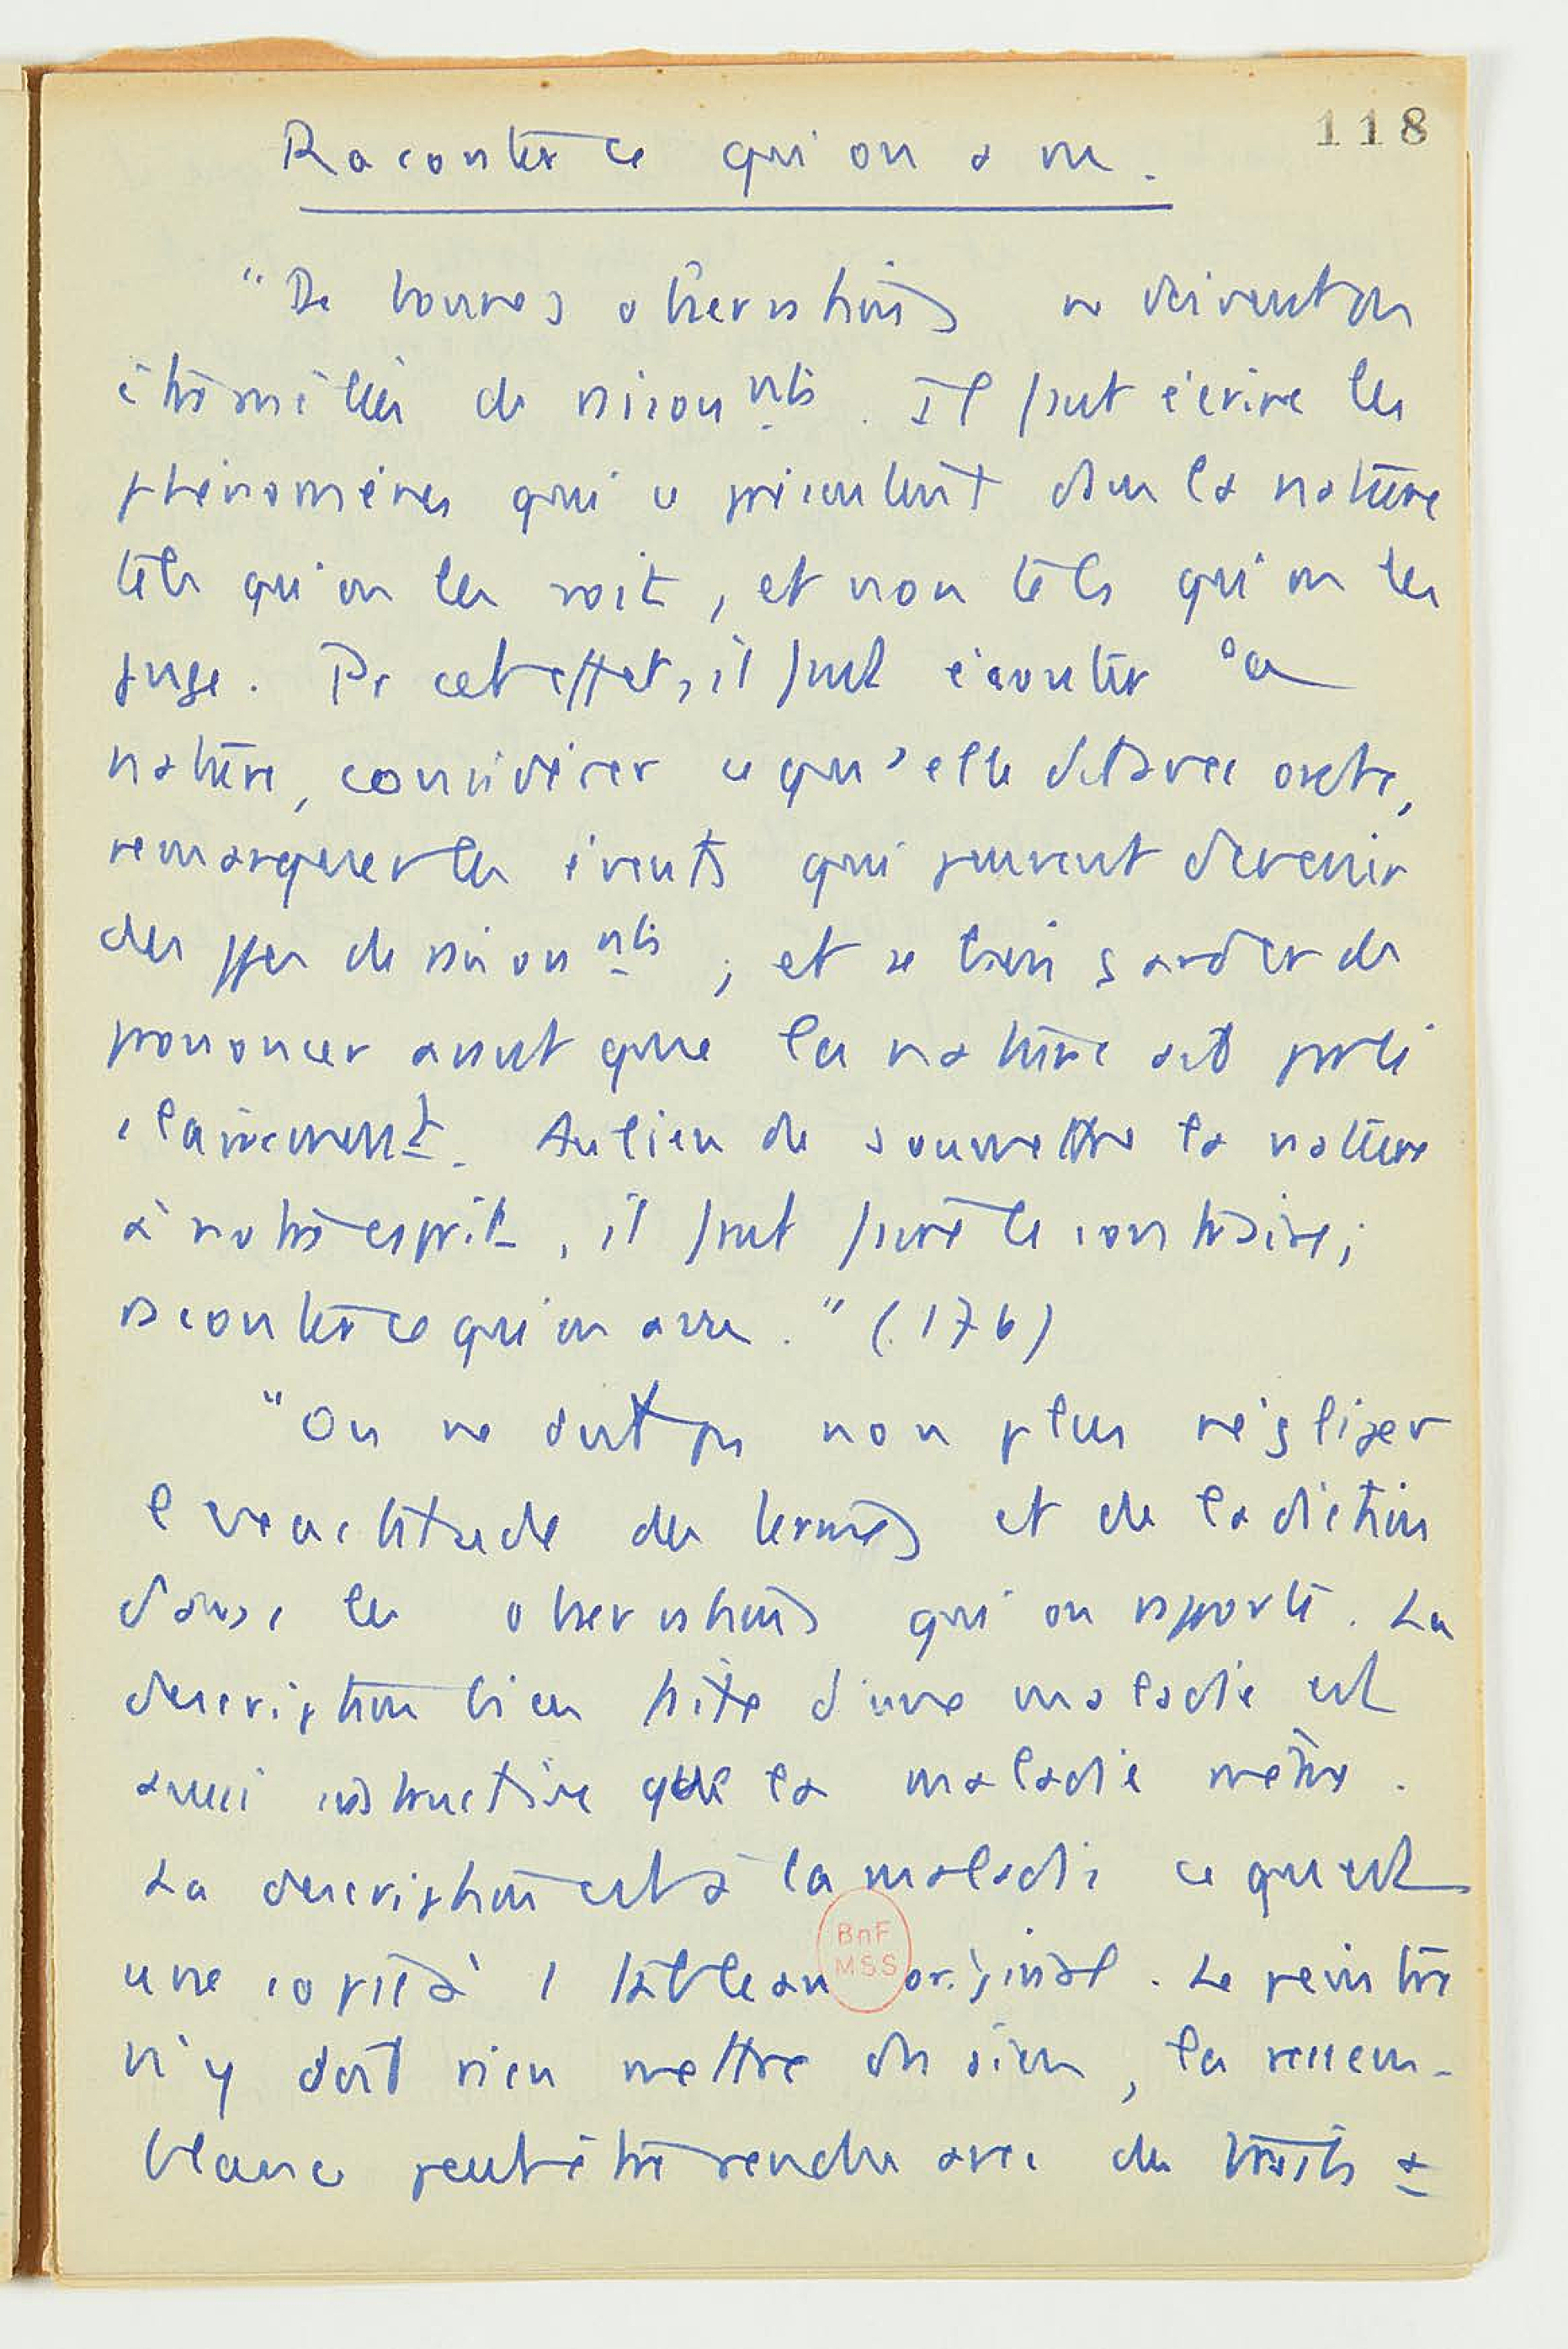 118
Raconter ce qu'on a vu.
"De bonnes observations ne doivent pas
être mêlées de raisonnts. Il faut écrire les
phénomènes qui se présentent dans la nature
tels qu'on les voit, et non tels qu'on les
juge. Pr cet effet, il faut écouter la
nature, considérer ce qu'elle dit avec ordre,
remarquer les évents qui peuvent devenir
des de raisonnts ; et se bien garder de
prononcer avant que la nature ait parlé
clairement. Au lieu de soumettre la nature
à notre esprit, il faut faire le contraire;
raconter ce qu'on a vu." (176)
"On ne doit pas non plus négliger
l'exactitude des termes et de la diction
dans les observations qu'on rapporte. La
description bien faite d'une maladie est
aussi instructive que la maladie même.
La description est à la maladie ce qu'est
une copie à l tableau original. Le peintre
n'y doit rien mettre du sien, la ressem-
blance peut être rendue avec des traits
BnF
MSS